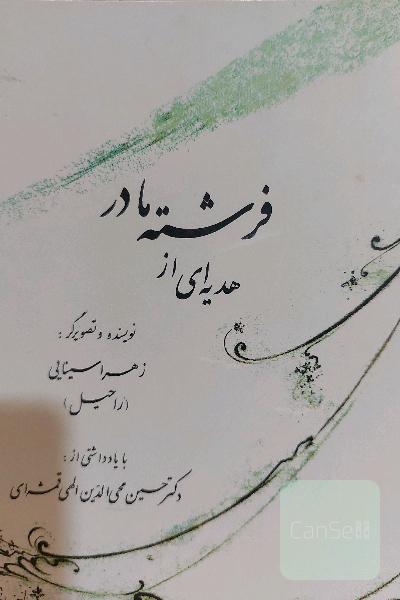 فرشته مادر
هدیه‌ای از
نویسنده و تصویرگر:
زهرا سینایی
(راحیل)
با یادداشتی از:
دکتر حسین محی‌الدین الهی قمشه‌ای
CanSe